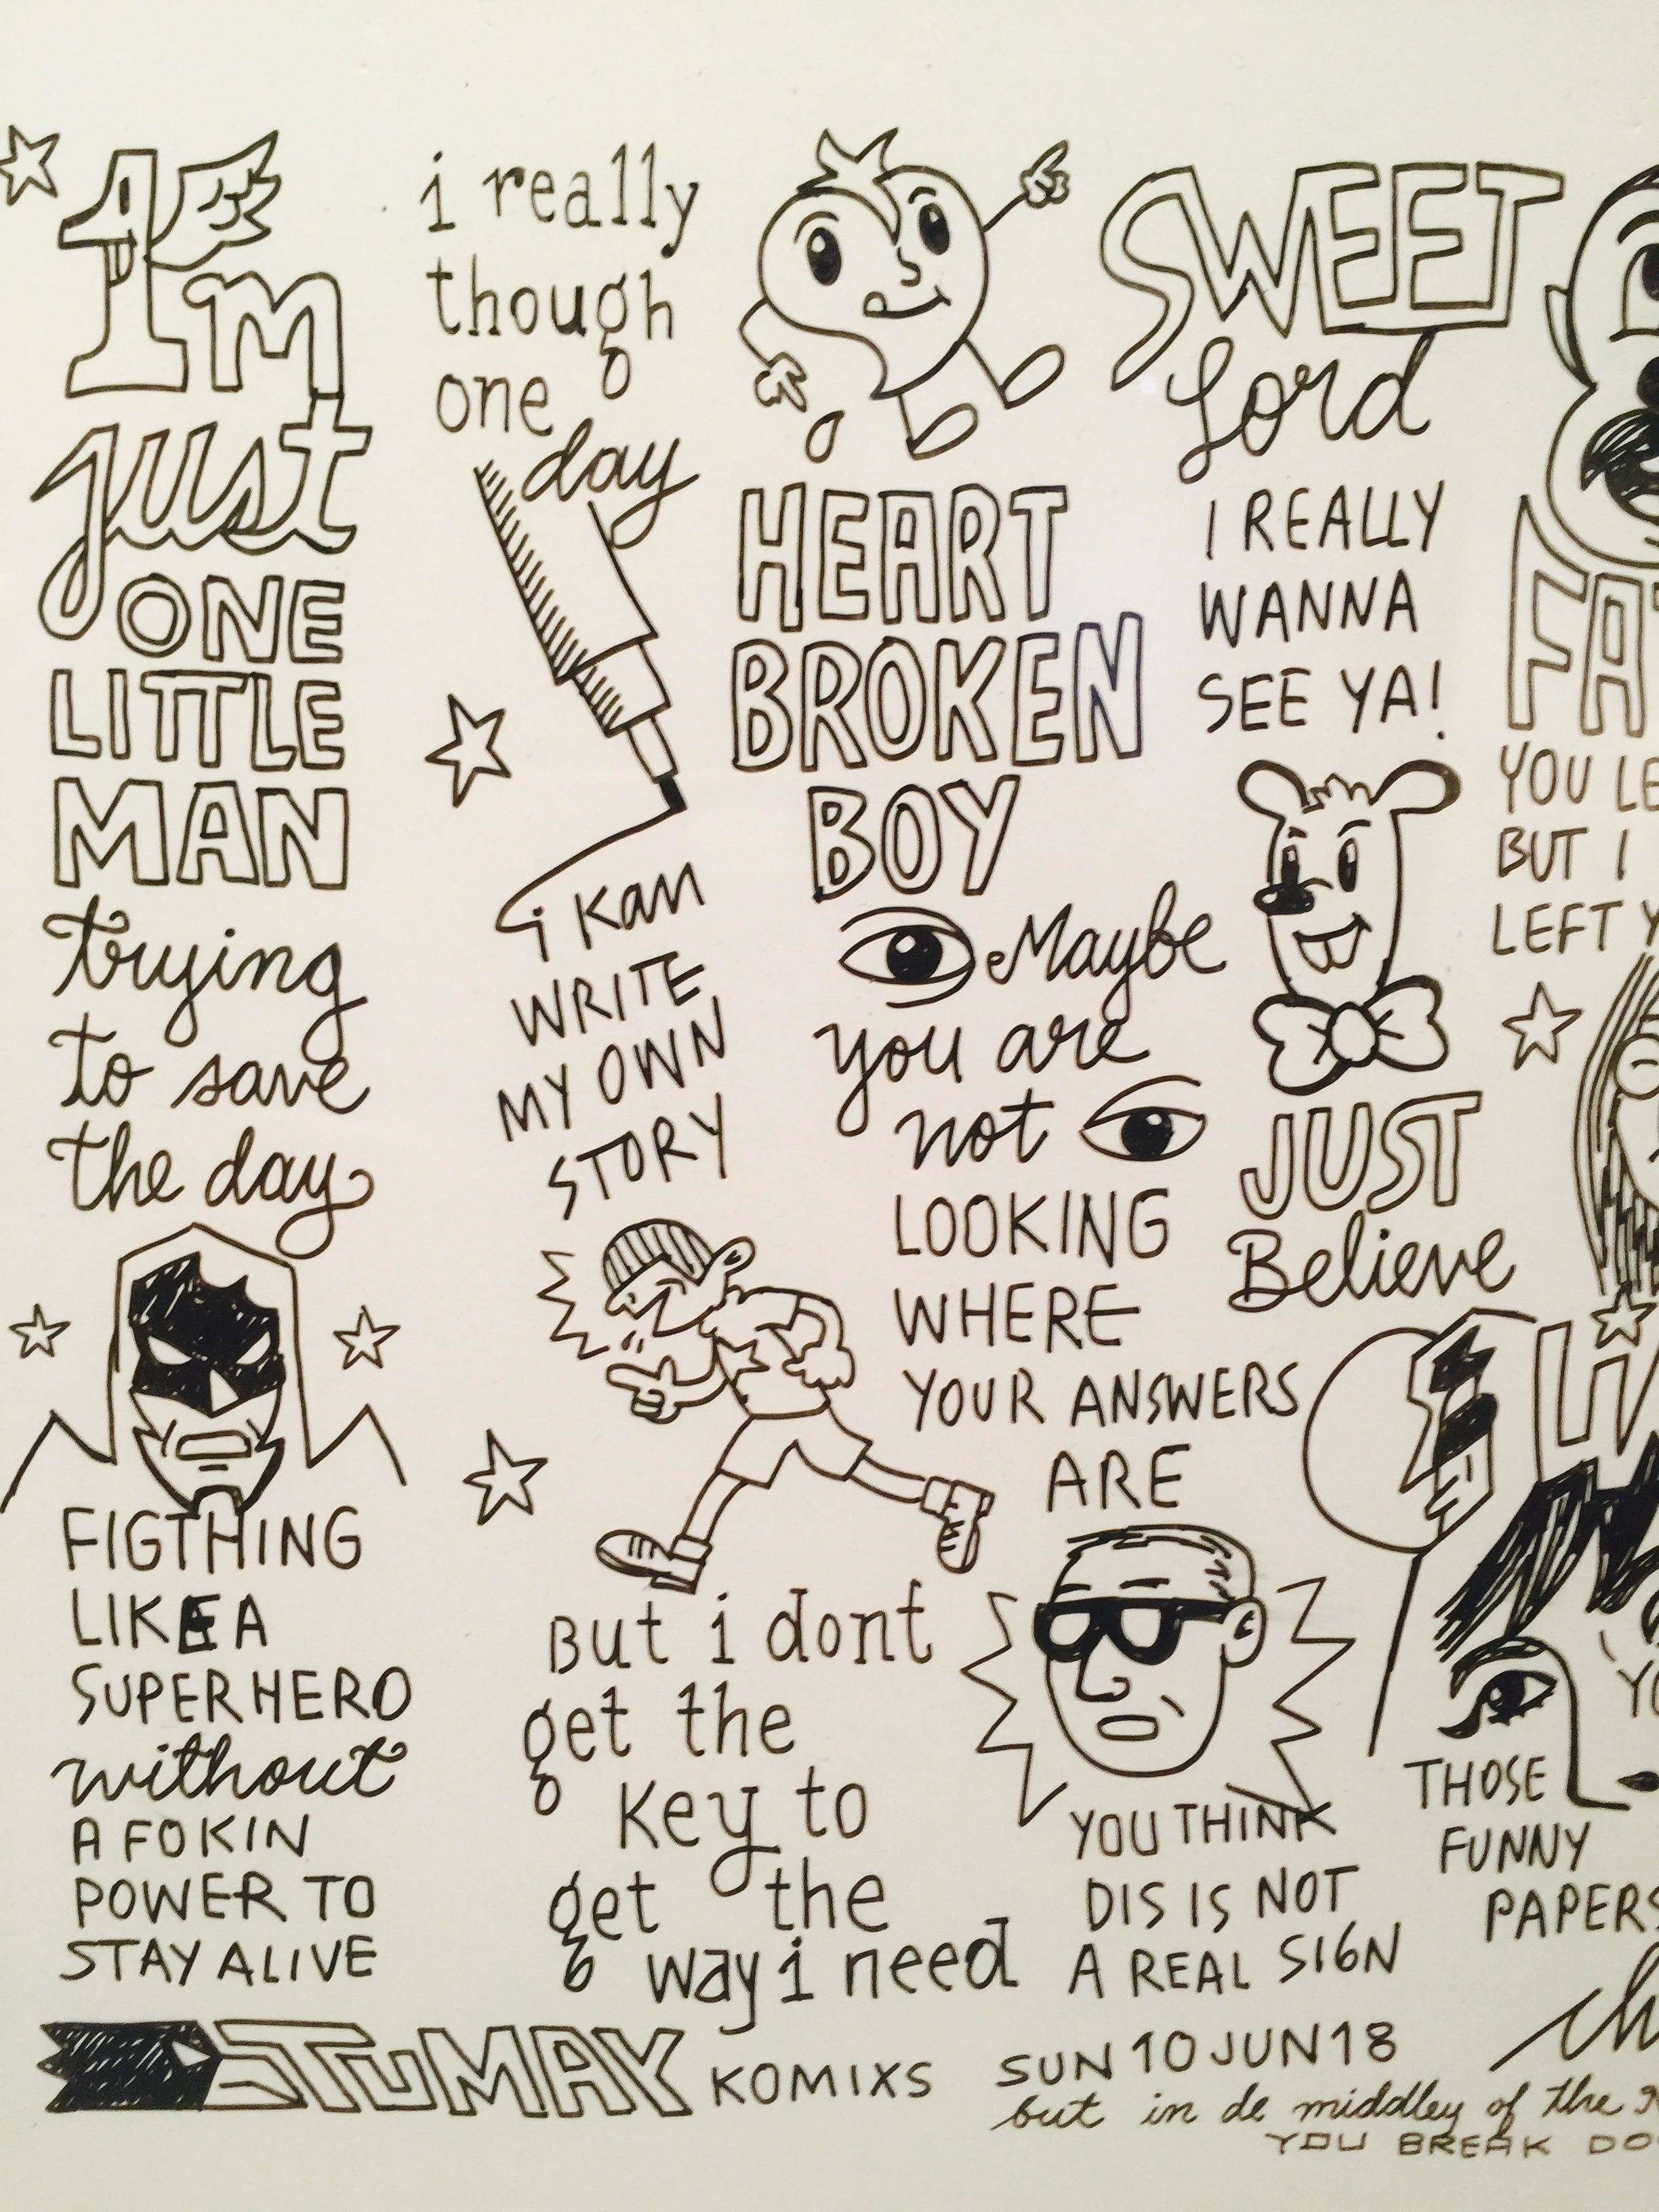 I'm
just
ONE
LITTLE
MAN
trying
to save
the day
FIGTHING
LIKE A
SUPERHERO
without
A FOKIN
POWER TO
STAY ALIVE
i really
though
one
day
i kan
WRITE
MY OWN
STORY
But i dont
get the
key to
get the
way i need
HEART
BROKEN
BOY
Maybe
you are
not
LOOKING
WHERE
YOUR ANSWERS
ARE
YOU THINK
DIS IS NOT
A REAL SIGN
SWEET
Lord
I REALLY
WANNA
SEE YA!
JUST
Believe
THOSE
FUNNY
PAPERS
FAT
YOU LE
BUT I
LEFT Y
W
YO
STUMAY KOMIXS
SUN 10 JUN 18
but in de middley of the
YOU BREAK DO